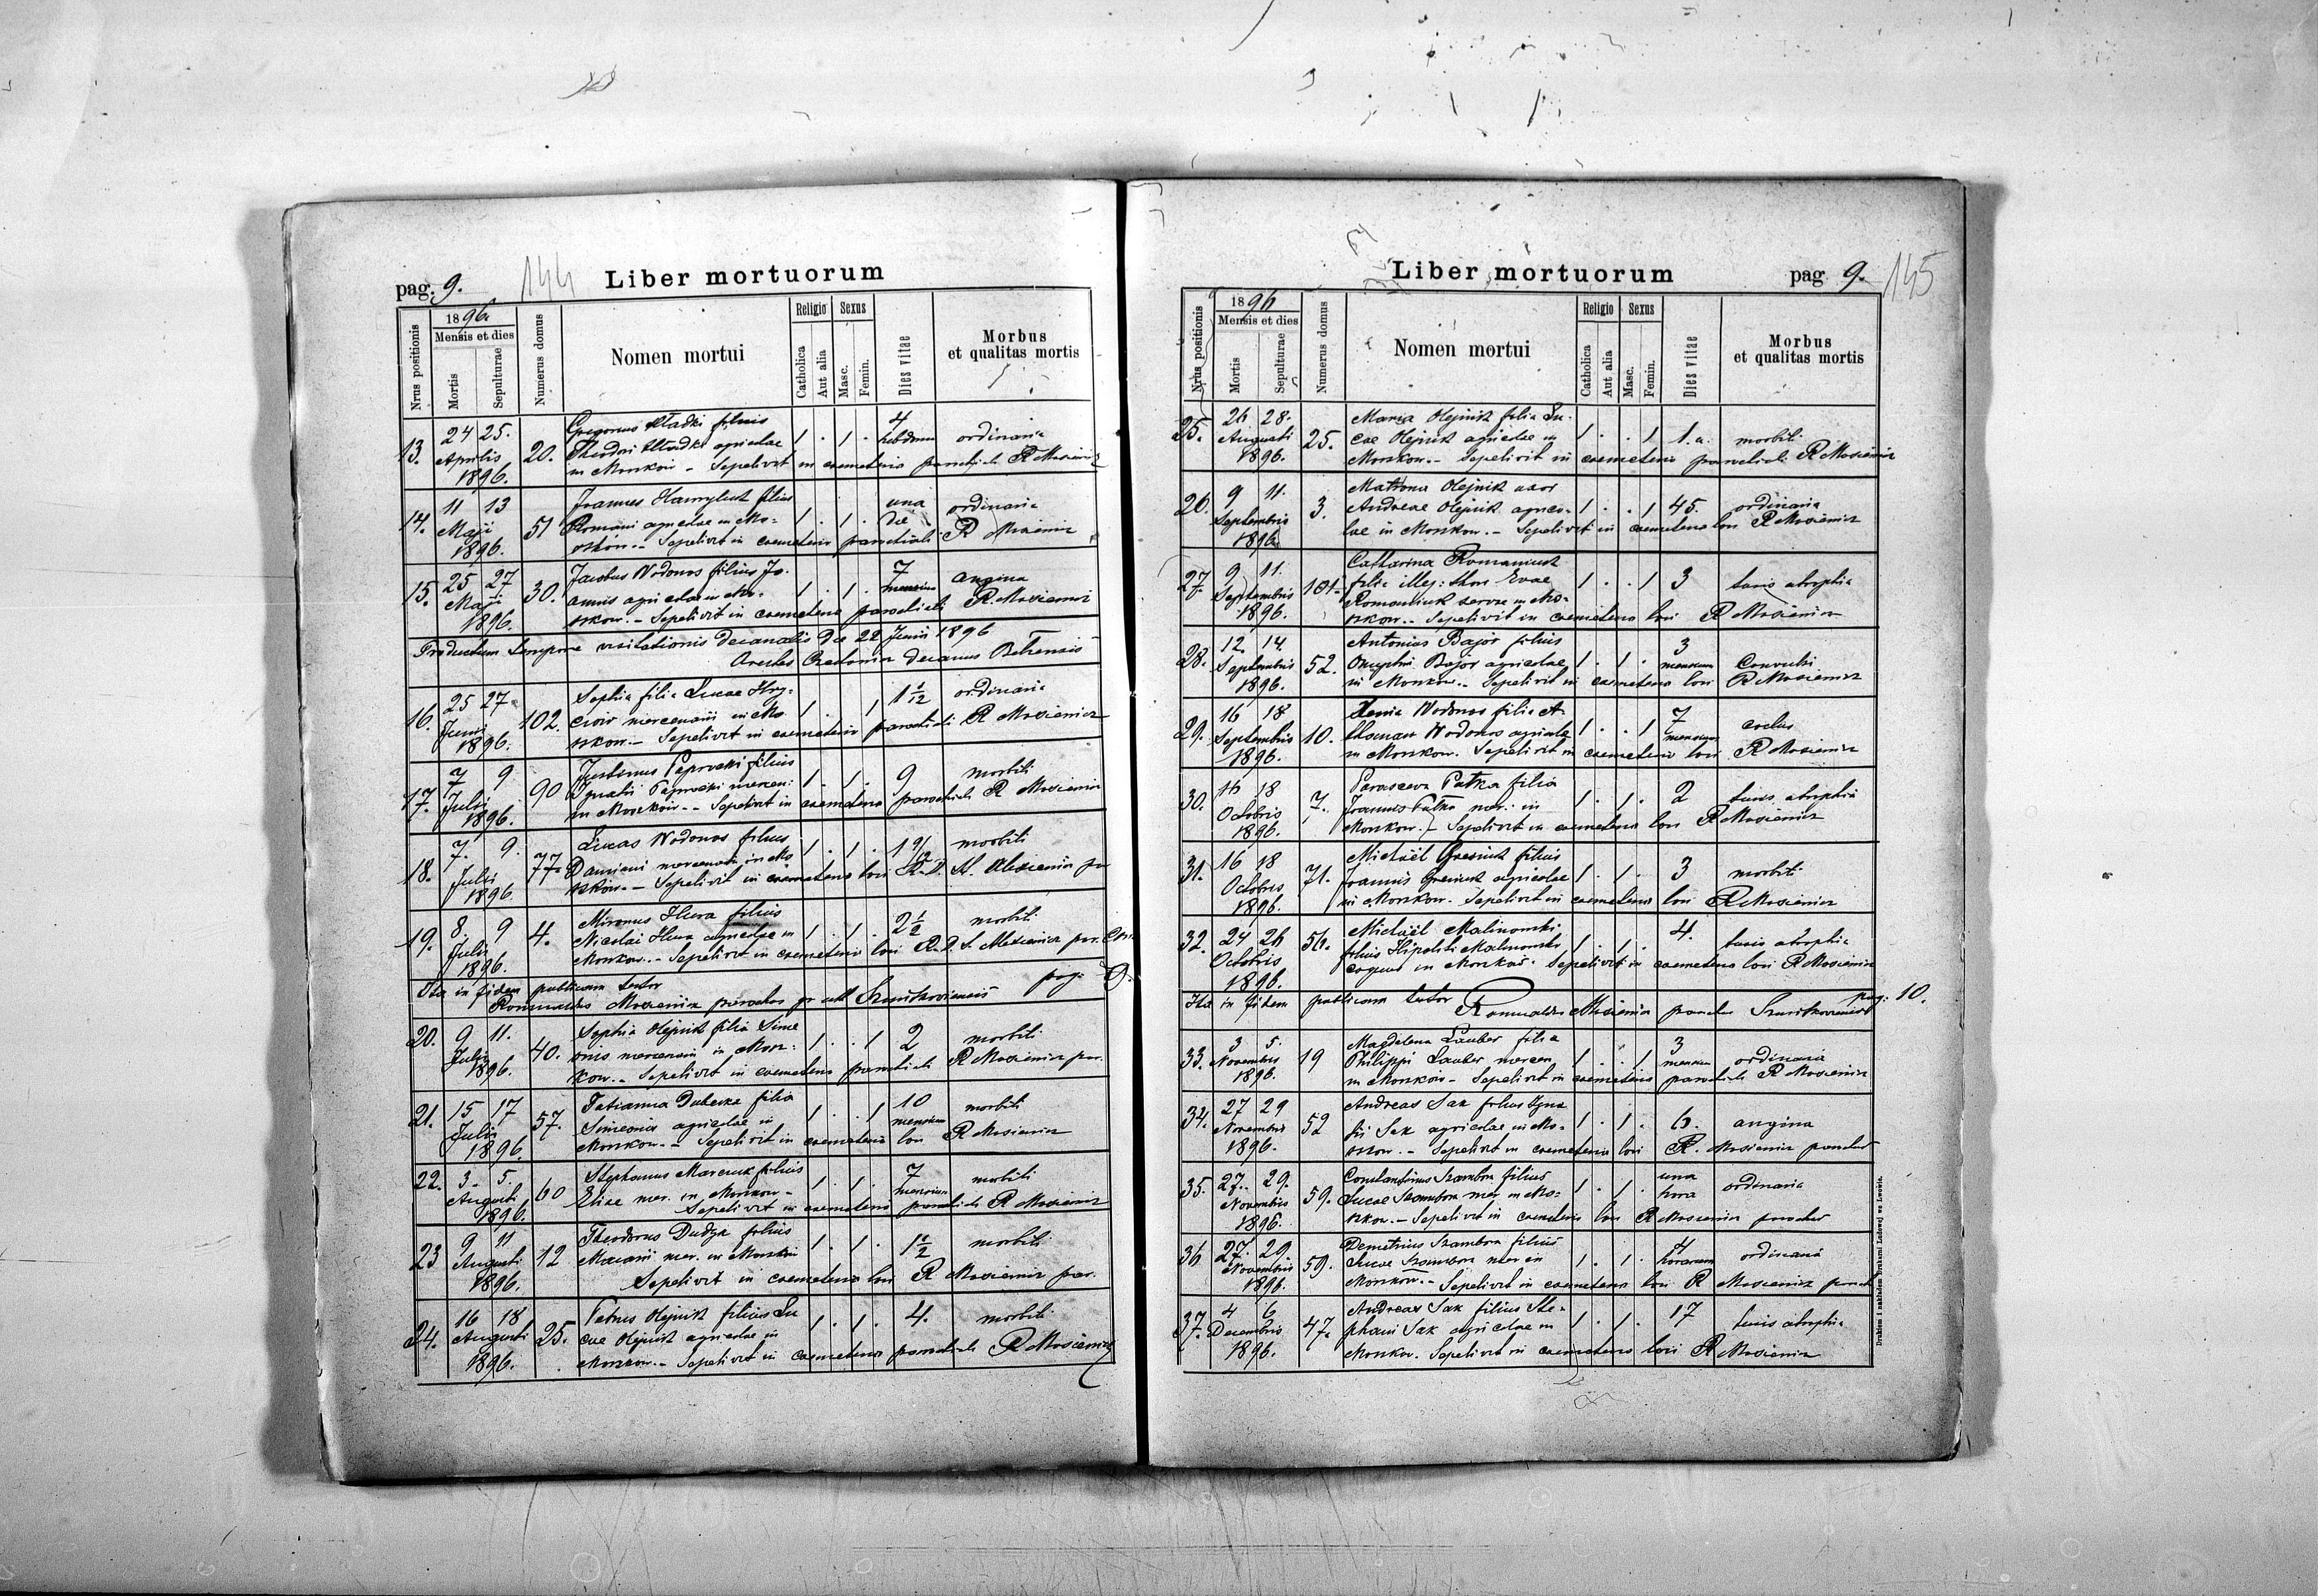 pag. 9.
144
Liber mortuorum
Nrus positionis
1896
Mensis et dies
Mortis
Sepulturae
Numerus domus
Nomen mortui
Religio
Catholica
Aut alia
Sexus
Masc.
Femin.
Dies vitae
Morbus
et qualitas mortis
13. 24 25. Aprilis 1896. 20. Gregorius filius 1 . 1 . 4 hebdom ordinaria
Theodori agricolae
in Moszków - Sepelivit in coemeterio parochiali R Mosiewicz
14. 11 13 Maji 1896. 51 Joannes filius 1 . 1 . una die ordinaria
Romani agricolae in Mo-
szków. - Sepelivit in coemeterio parochiali R Mosiewicz
15. 25 27 Maji 1896. 30. Jacobus Wodonos filius Jo- 1 . 1 . 7 mensium angina
annis agricolae in Mo-
szkow. - Sepelivit in coemeterio parochiali R. Mosiewicz
Productum tempore visitationis decanalis die 22 Junii 1896
decanus Belzensis
16. 25 27 Junii 1896. 102. Sophia filia Lucae Hry- 1 . . 1 1 1/12 ordinaria
ciow mercenarii in Mo-
szkow. - Sepelivit in coemeterio parochiali R Mosiewicz
17. 7 9 Julii 1896. 90 Justinus Paprocki filius 1 . 1 . 9 morbili
Ignatii Paprocki mercen:
in Moszków - Sepelivit in coemeterio parochiali R Mosiewicz
18. 7. 9. Julii 1896 77. Lucas Wodonos filius 1 . 1 . 1 9/12 morbili
Damiani mercenarii in Mo-
szków. - Sepelivit in coemeterio loci
19. 8. 9 Julii 1896. 4. Mironus Hura filius 1 . 1 . 2 1/2 morbili
Nicolai Hura agricolae in
Moszkow. - Sepelivit in coemeterio loci
Ita in fidem publicam testor pag: 9.
Romualdus Mosiewicz parochus
20. 9 11. Julii 1896. 40. Sophia Olejnik filia Sime- 1 . . 1 2 morbili
onis mercenarii in Mosz-
kow. - Sepelivit in coemeterio parochiali R Mosiewicz par.
21. 15 17 Julii 1896. 57. Tatianna Dubecka filia 1 . . 1 10 mensium morbili
Simeonis agricolae in
Moszkow. - Sepelivit in coemeterio loci R Mosiewicz
22. 3. 5. Augusti 1896. 60 Stephanus Marciuk filius 1 . 1 . 7 mensium morbili
Elisae mer. in Moszkow -
Sepelivit in coemeterio parochiali R Mosiewicz
23 9 11 Augusti 1896. 12 Theodorus Dudga filius 1 . 1 . 1 1/2 morbili
mer. in Moszków
Sepelivit in coemeterio loci R Mosiewicz par.
24. 16 18 Augusti 1896. 25. Petrus Olejnik filius Lu- 1 . 1 . 4. morbili
cae Olejnik agricolae in
Moszkow. - Sepelivit in coemeterio parochiali R Mosiewicz
Liber mortuorum
pag 9.
145
Nrus positionis
1896
Mensis et dies
Mortis
Sepulturae
Numerus domus
Nomen mortui
Religio
Catholica
Aut alia
Sexus
Masc.
Femin.
Dies vitae
Morbus
et qualitas mortis
25. 26 28. Augusti 1896. 25. Maria Olejnik filia Lu- 1 . . 1 1. a. morbili
cae Olejnik agricolae in
Moszkow. - Sepelivit in coemeterio parochiali R Mosiewicz
26. 9 11. Septembris 1896 3. Matrona Olejnik uxor 1 . . 1 45. ordinaria
Andreae Olejnik agrico-
lae in Moszkow. - Sepelivit in coemeterio loci R Mosiewicz
27. 9 11. Septembris 1896. 101. Catharina Romaniuk 1 . . 1 3 tussis atrophia
filia illeg: thori Evae
Romaniuk servae in Mo-
szkow. - Sepelivit in coemeterio loci R Mosiewicz
28. 12. 14. Septembris 1896. 52. Antonius Bajor filius 1 . 1 . 3 mensium Convulsi
Onuphrii Bajor agricolae
in Moszkow. - Sepelivit in coemeterio loci R Mosiewicz
29. 16 18 Septembris 1896. 10. Xenia Wodonos filia A- 1 . . 1 7 mensium
Wodonos agricolae
in Moszkow. Sepelivit in coemeterio loci R Mosiewicz
30. 16 18 Octobris 1896. 7. Parasceva Patka filia 1 . 1 . 2 tussis atrophia
Joannis Patka mer: in
Moszkow. - Sepelivit in coemeterio loci R Mosiewicz
31. 16 18 Octobris 1896. 71. Michaël Gresiuk filius 1 . 1 . 3 morbili
Joannis Gresiuk agricolae
in Moszkow. Sepelivit in coemeterio loci R Mosiewicz
32. 24 26 Octobris 1896. 56. Michaël Malinowski 1 . 1 . 4. tussis atrophia
filius Hipoliti Malinowski
in Moszków. Sepelivit in coemeterio loci R Mosiewicz
Ita in fidem publicam testor Romualdus Mosiewicz pag: 10.
33. 3 5. Novembris 1896. 19 Magdalena Lauber filia 1 . . 1 3 mensium ordinaria
Philippi Lauber mercen.
in Moszków - Sepelivit in coemeterio parochiali R Mosiewicz
34. 27 29 Novembris 1896. 52 Andreas Sak filius Igna- 1 . 1 . 6. angina
tii Sak agricolae in Mo-
szkow. - Sepelivit in coemeterio loci R. Mosiewicz parochus
35. 27. 29. Novembris 1896. 59. Constantinus Szambra filius 1 . 1 . una hora ordinaria
Lucae Szambra mer in Mo-
szkow. - Sepelivit in coemeterio loci R Mosiewicz parochus
36 27. 29. Novembris 1896. 59. Demetrius Szambra filius 1 . 1 . 4 horarum ordinaria
Lucae Szambra mer in
Moszkow. - Sepelivit in coemeterio loci R Mosiewicz paroch
37. 4 6 Decembris 1896. 47. Andreas Sak filius Ste- 1 . 1 . 17 tussis atrophia
phani Sak agricolae in
Moszkow. Sepelivit in coemeterio loci R Mosiewicz
Drukiem i nakładem Drukarni Ludowej we Lwowie.